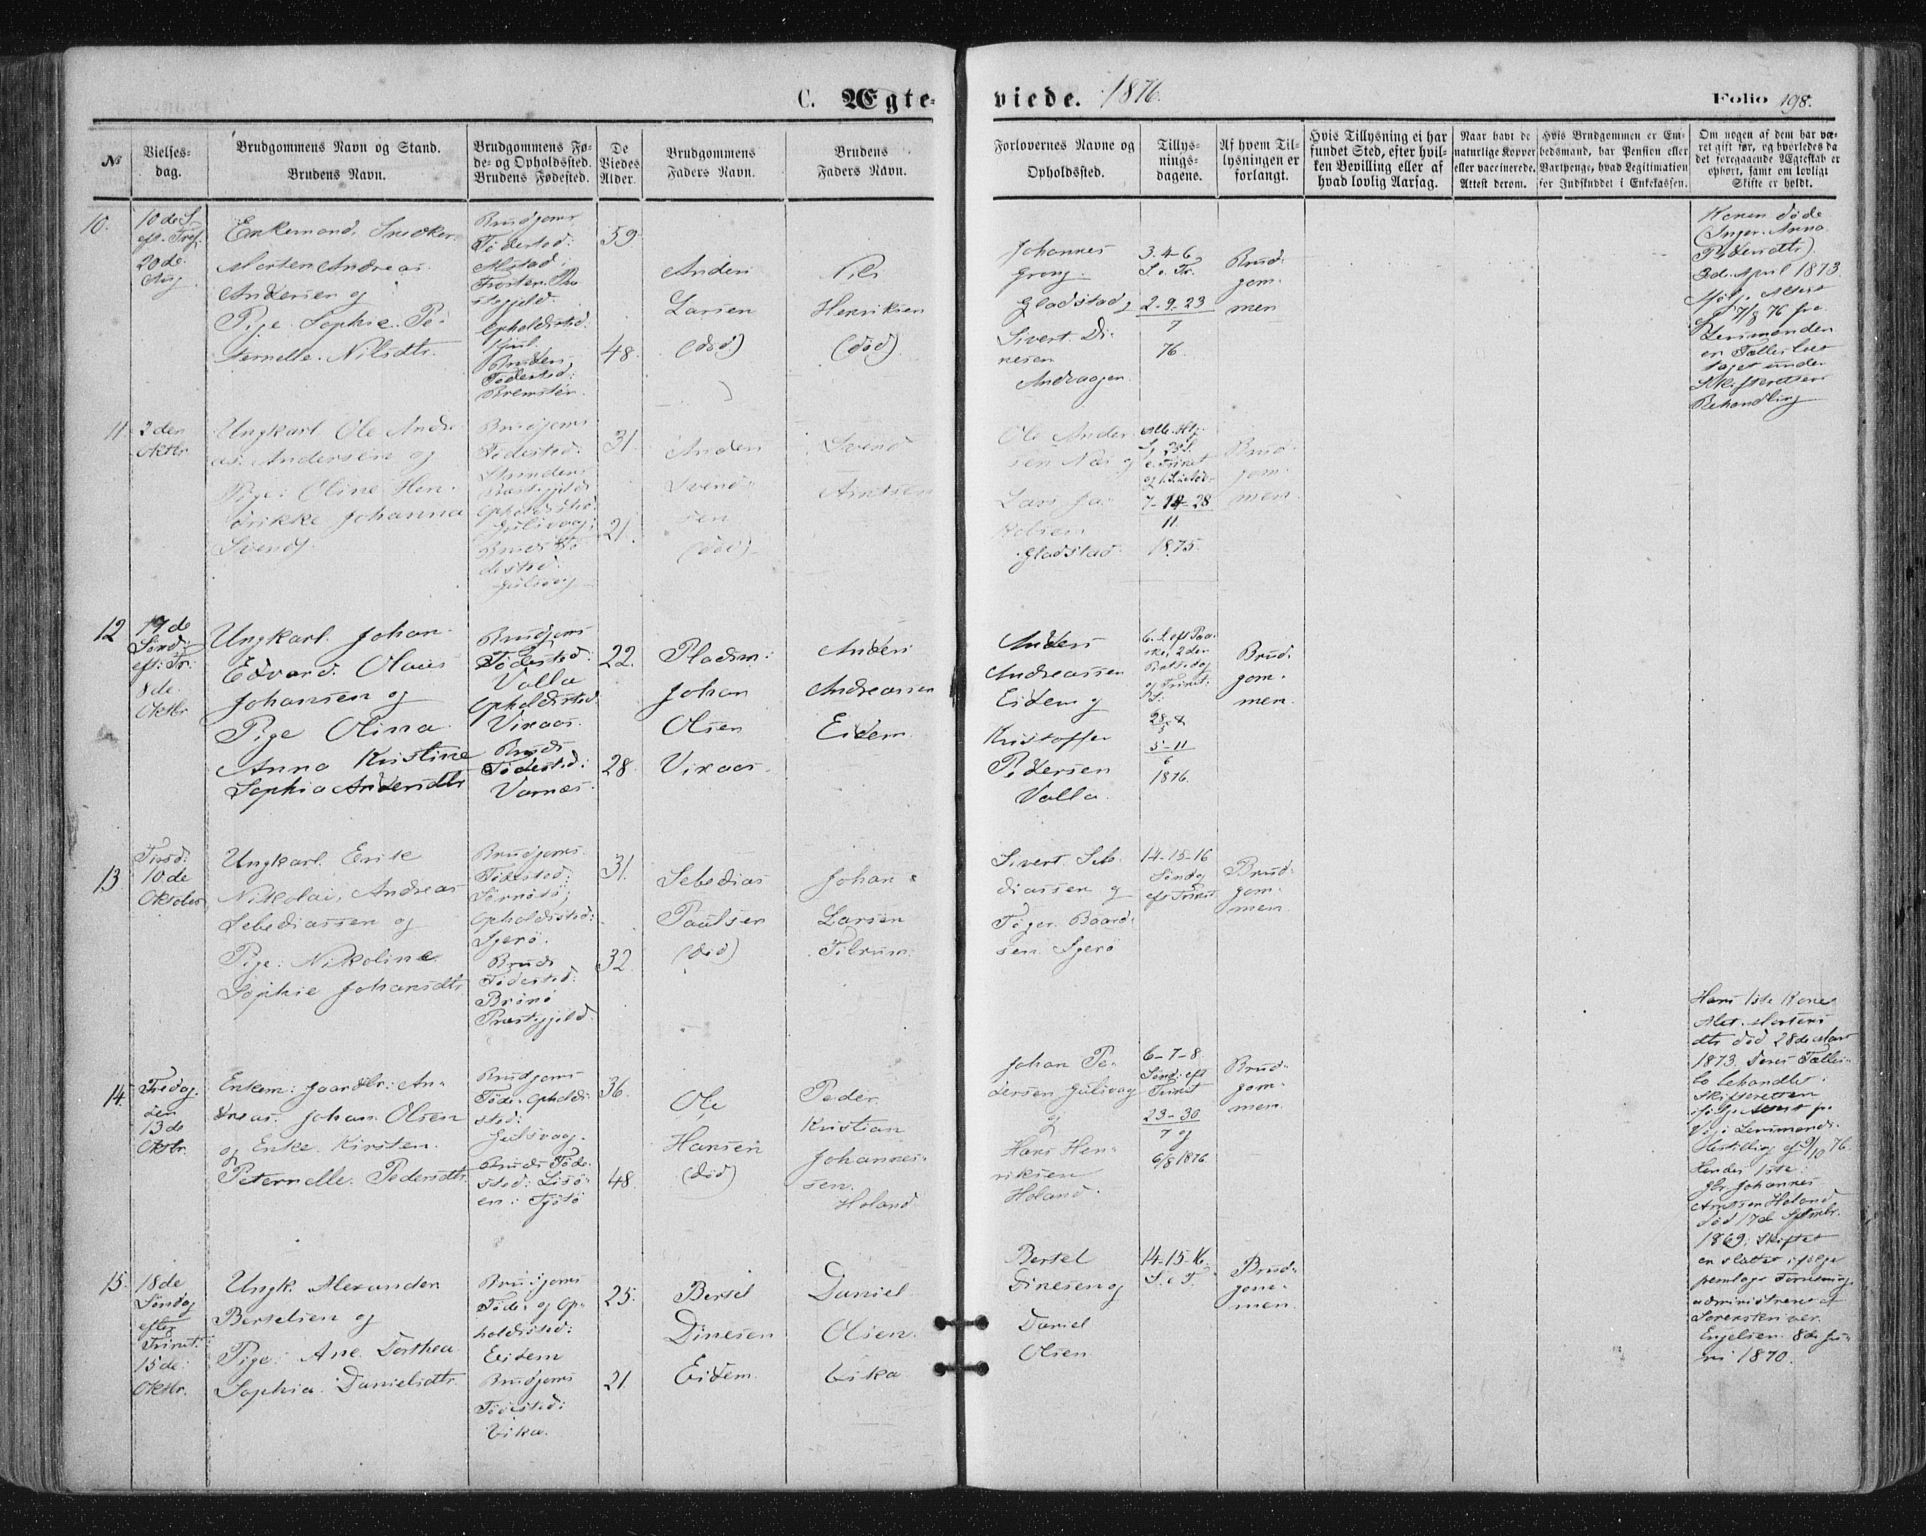 C. Ægte-
viede. 1876.
Folio 198.
No
Vielses-
dag.
Brudgommens Navn og Stand.
Brudens Navn.
Brudgommens Fø-
de- og Opholdssted.
Brudens Fødested.
De
Viedes
Alder.
Brudgommens
Faders Navn.
Brudens
Faders Navn.
Forlovernes Navne og
Opholdssted.
Tillys-
nings-
dagene.
Af hvem Til-
lysningen er
forlangt.
Hvis Tillysning ei har
fundet Sted, efter hvil-
ken Bevilling eller af
hvad lovlig Aarsag.
Naar havt de
naturlige Kopper
eller vaccinerede.
Attest derom.
Hvis Brudgommen er Em-
bedsmand, har Pension eller
Vartpenge, hvad Legitimation
for Indskuddet i Enkekassen.
Om nogen af dem har væ-
ret gift før, og hvorledes da
det foregaaende Ægteskab er
ophørt, samt om lovligt
Skifte er holdt.
10.
10de S.
eft. Tref.
20de
Aug
Enkemand. Snedker
Morten Andreas
Andersen og
Pige. Sophie. Pe-
ternelle. Nilsdtr.
Brudgoms
Fødested:
Frosten. Præ
stegjeld.
Opholdssted.
Bruden,
Fødested:
59.
48.
Anders
Larsen
(død)
Nils
Henriksen
(død)
Johannes
Grong.
Gladstad,
Sivert Di-
nesen
3-4-6
S. e. Tr.
2-9-23
7
76.
Brud
gom-
men
Konen døde
(Inger. Anna
Pedersdtr)
3de April 1873.
Ifølg. Attest
7/8 76 fra
Lensmanden
er Fælles boet
taget under
Skifterettens
Behandling
11.
2den
Oktbr
Ungkarl Ole Andre-
as. Andersen og
Pige: Oline Hen-
drikke Johanna
Svends.
Brudgoms
Fødested:
Præstegjeld
Opholdssted
Gulsvag;
Bruds Fø
destad:
Gulsvag
31.
21.
Anders
Svend-
sen
(død)
Svend
Arntsen
Ole Ander
sen Næs og
Lars Ja-
kobsen
Gladstad.
7-14-28
11
1875.
Brud-
gom-
men.
12
17de
Sønd:
eft: Tr.
8de
Oktbr
Ungkarl. Johan
Edvard. Olaus
Johansen og
Pige Olina
Anna Kristine
Sophia Andersdtr
Brudgoms
Fødested:
Valla
Opholdssted
Vixaas.
Bruds
Fødested:
Varnæs.
22.
28.
Pladsm:
Johan
Olsen
Vixaas.
Anders
Andreassen
Eidem.
Anders
Andreassen
Eidem og
Kristoffer
Pedersen
Valla.
6. S. eft Paa-
ske. 2den
Pintsedag
og Trinit:
S.
28-4
5
5-11
6
1876.
Brud-
gom-
men.
13
Tirsd:
10de
Oktober
Ungkarl. Erik
Nikolai, Andreas
Sebediassen og
Pige: Nikoline
Sophie Johansdtr
Brudgoms.
Fødested:
Opholdssted:
Igerø.
Bruds
Fødested:
Brønø
Præstegjeld.
31.
32.
Sebedias
Paulsen
(død)
Johan
Larsen
Tilrum.
Sivert. Seb-
diassen og
Tøger. Baard-
sen. Igerø
14-15-16
Søndag
eft Trinit
Brud-
gom-
men.
14.
Fredag.
den
13de
Oktbr.
Enkem: Gaardbr: An-
dreas. Johan. Olsen
og Enke. Kirsten.
Peternelle. Pedersdtr.
Brudgoms
Føde. Opholds-
sted:
Gulsvag.
Bruds Føde-
sted:
36.
48.
Ole
Hansen
(død)
Peder
Kristian
Johannes-
sen.
Holand
Johan Pe-
dersen Gulsvag
og
Hans Hen-
riksen
Holand.
6-7-8
Sønd: eft
Trinit
23-30
7 og
6/8 1876
Brud-
gom-
men.
Hans 1ste Kone
Alet. Mortens
dtr død 28de Mart
1873. Deres Fælles-
bo behandlet i
Skifteretten
ifølg. Attest fra
9/10 76.
Hendes 1ste:
gbr. Johannes
Arntsen Holand
død 17de Septmbr.
1869; Skiftet
er sluttet ifølge
Engelsen. 8de Ju-
ni 1870.
15.
18de
Søndag
efter
Trinit.
15de:
Oktbr.
Ungk. Alexander
Bertelsen og
Pige: Ane. Dorthea
Sophia. Danielsdtr.
Brudgoms
Føde- og Op-
holdssted:
Eidem
Brudgoms
Fødested:
Vika.
25.
21.
Bertel
Dinesen
Eidem.
Daniel
Olsen.
Vika
Bertel
Dinesen og
Daniel
Olsen.
14-15-16
S. e T.
Brud-
gom-
men.